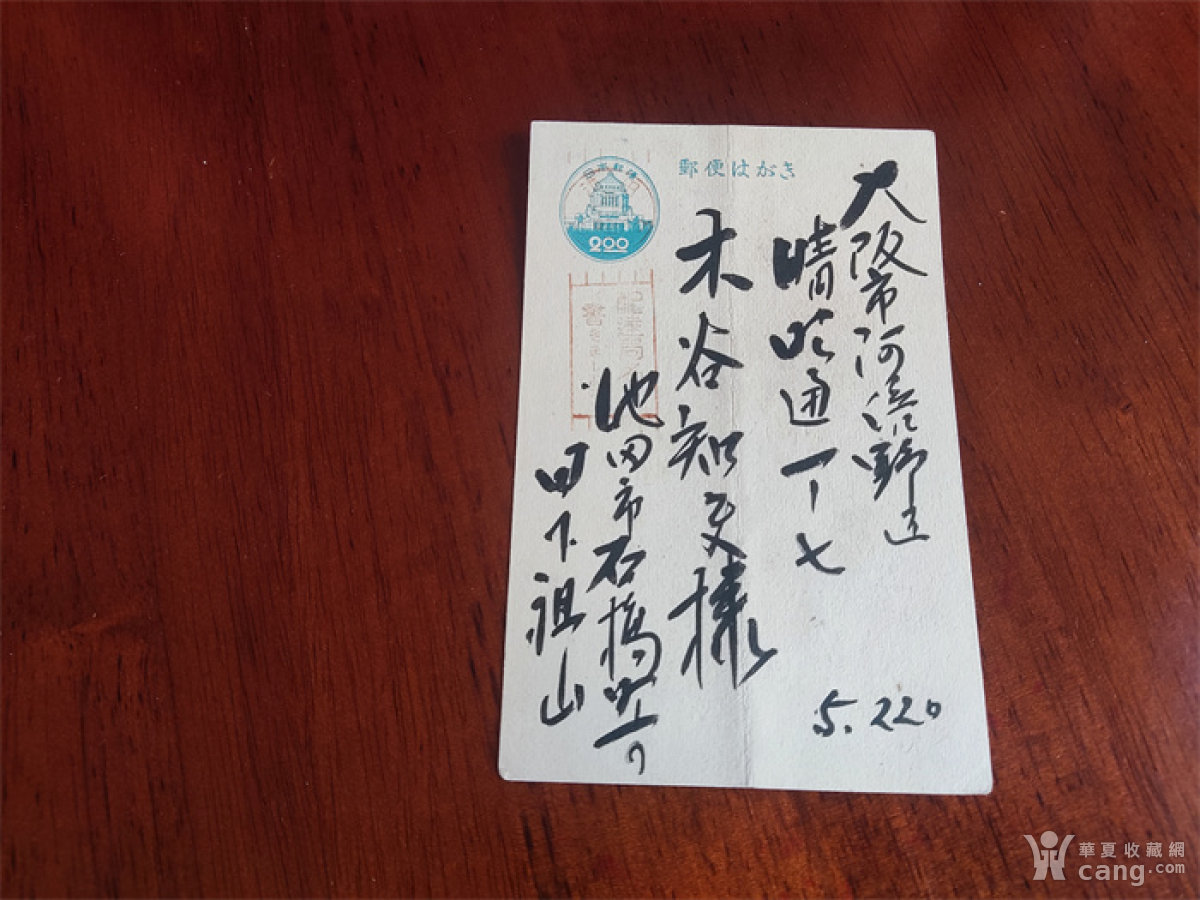 郵便はがき
200
大阪市阿倍野区
晴明通一ー七
木谷知文様
池田市石橋
田下祖山
5. 22
華夏收藏網
cang.com